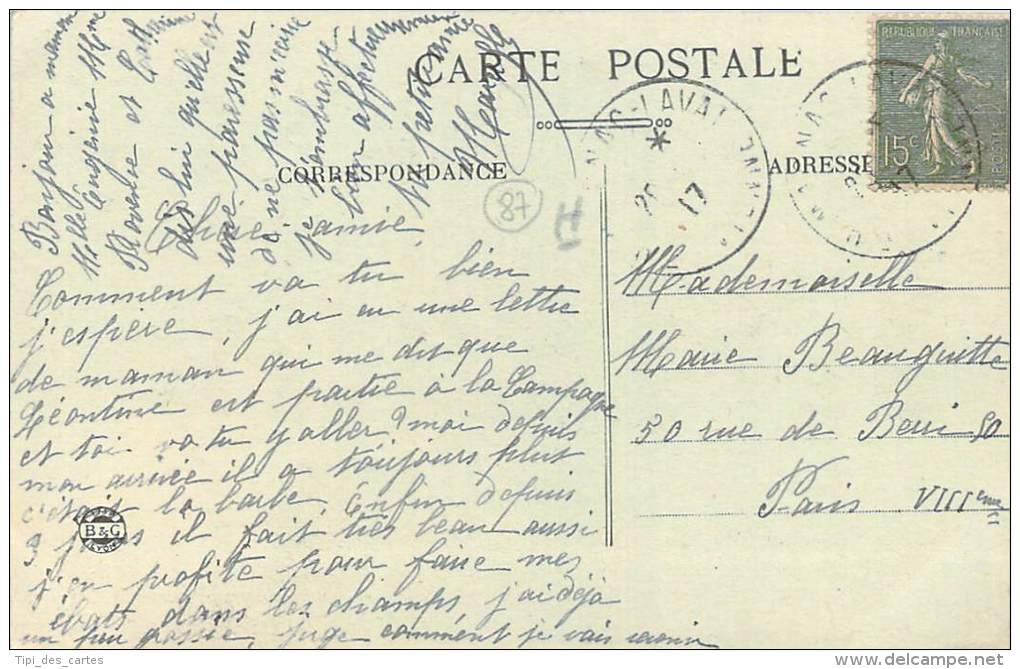 CARTE POSTALE
CORRESPONDANCE
ADRESSE
REPUBLIQUE FRANÇAISE
15c
POSTES
NAC-LAVAL
25
17
87
H
Chère amie,
Comment va tu bien
j'espère, j'ai eu une lettre
de maman qui me dit que
Léontine est partie à la Campagne
et toi va tu y aller? moi depuis
mon arrivée il a toujours plut
c'était la barbe. Enfin depuis
3 jours il fait très beau aussi
j'en profite pour faire mes
ébats dans les champs, j'ai déjà
un peu grossie, juge comment je vais revenir
Bonjour a maman
Melle Eugénie Mme
Florence et
dis lui qu'elle est
une paresseuse
de ne pas m'écrire
je t'embrasse
bien affectueusement
Ma petite amie
Marcelle
B & G
LYON
Mademoiselle
Marie Beauguitte
50 rue de Berri 50
Paris VIIIeme
Tipi_des_cartes
delcampe.net